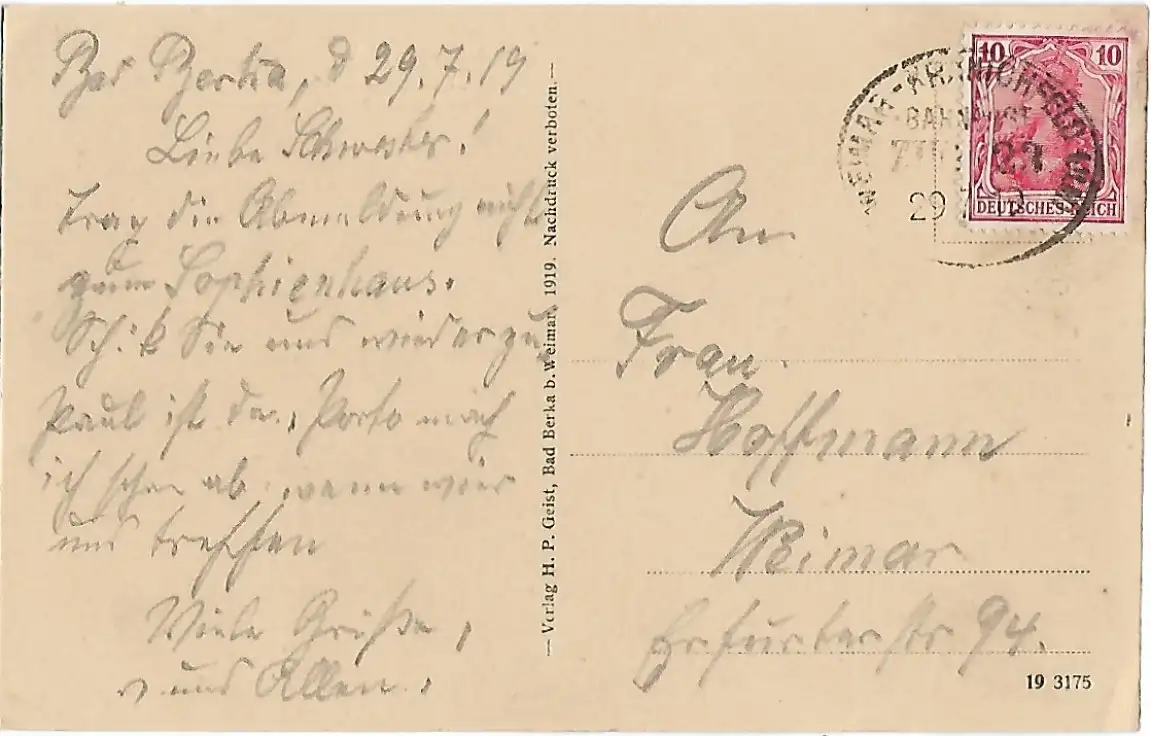 Bad Berka, d 29.7.19
Liebe Schwester!
Trag die Abmeldung nicht
zum Sophienhaus.
Schik Sie uns wieder zu,
Paul ist da, Porto mach
ich schon ab wenn wier
uns treffen
Viele Grüße,
v uns Allen.
— Verlag H. P. Geist, Bad Berka b. Weimar. 1919. Nachdruck verboten. —
WEIMAR - KRANICHFELD
BAHNPOST
ZUG
29
10 10
DEUTSCHES REICH
An
Frau
Hoffmann
Weimar
Erfurterstr 94.
19 3175